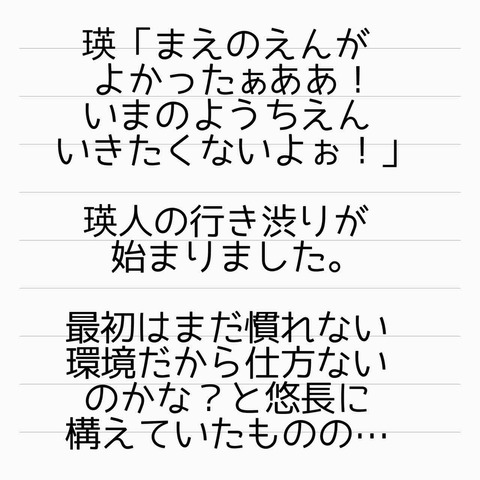 瑛「まえのえんが
よかったぁああ！
いまのようちえん
いきたくないよぉ！」
瑛人の行き渋りが
始まりました。
最初はまだ慣れない
環境だから仕方ない
のかな？と悠長に
構えていたものの…